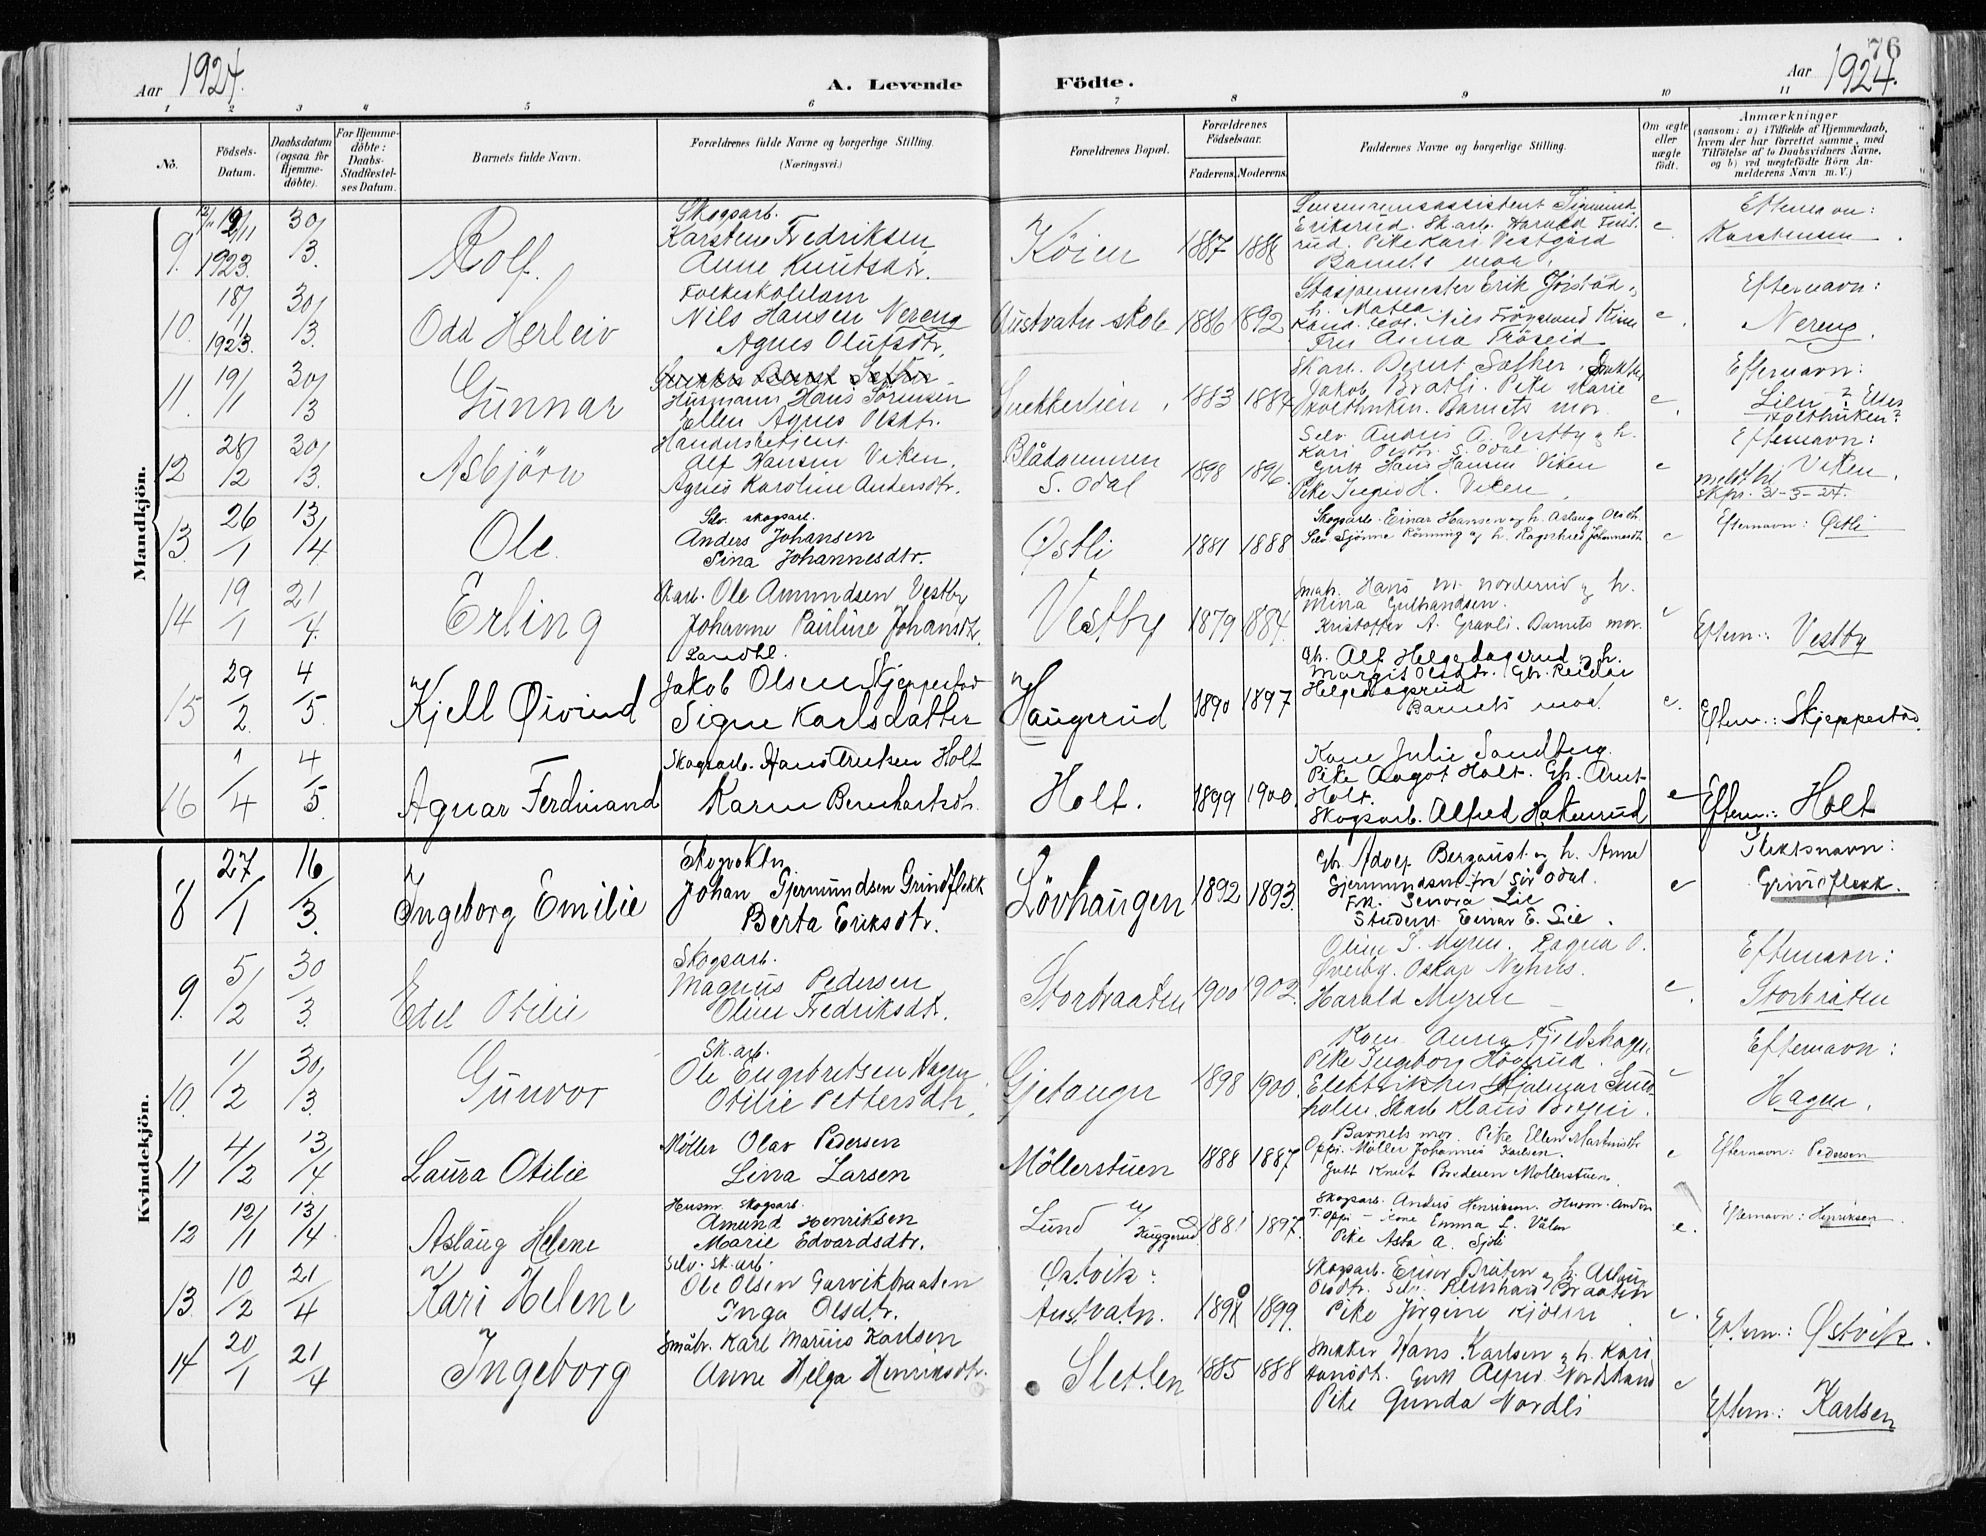 76
Aar 1924.
A. Levende Födte.
Aar 1924.
1 2 3 4 5 6 7 8 9 10 11
No.
Födsels-Datum.
Daabsdatum (ogsaa for Hjemme-döbte).
For Hjemme-döbte: Daabs-Stadfæstel-ses Datum.
Barnets fulde Navn.
Forældrenes fulde Navne og borgerlige Stilling. (Næringsvei.)
Forældrenes Bopæl.
Forældrenes Födselsaar.
Faderens. Moderens.
Faddernes Navne og borgerlige Stilling.
Om ægte eller uægte födt.
Anmærkninger
(saasom: a) i Tilfælde af Hjemmedaab, hvem der har forrettet samme, med Tilföielse af to Daabsvidners Navne, og b) ved uegtefödte Börn An-melderens Navn m. V.)
Mandkjön.
9. 1923. 30/3. Rolf.
Skogsarb.
Karstene Fredriksen
Anne Knutsdtr.
Köien 1887 1888
Lensmannsassistent Sigmund
Eriksrud. Skarb. Harald
rud. Pike Kari Vestgård
Barnets moa.
e.
Efternavn:
Karstensen.
10. 18/11 1923. 30/3. Odd Herleiv
Nils Hansen Nereng
Agnes Olufsdtr.
Austvatn skole 1886 1892
Erik
h. Matea
Kand. Nils
Fru Anna Fröseid
e.
Efternavn:
Nereng.
11. 19/1 30/3 Gunnar
Husmann Hans Sörensen
Ellen Agnes Olsdtr.
Snekkerlien. 1883 1884
Skarb. Bernt Sæther.
Jakob Bratli. Pike Marie
Barnets mor.
e.
Efternavn:
Lien?
12 28/12 30/3. Asbjörn
Handelsbetjent
Alf Hansen Viken.
Agnes Karoline Andersdtr.
S. Odal 1898 1896.
Selv. Andris A. Vestby og h.
Kari S. Odal.
Gutt Hans Hansen Viken
Pike Ingrid H. Viken.
e
Efternavn:
Viken.
31-3-24.
13. 26/1 13/4 Ole.
Selv. skogsarb.
Anders Johansen
Sina Johannesdtr.
Østli 1881 1888
Skogsarb. Einar Hansen og h. Aslaug
Selv. Sjönne Rönning og h. Ragnhild Johannesdtr
e
Efternavn: Østli
14 19/1 21/4. Erling
Skarb. Ole Amundsen Vestby
Johanne Pauline Johansdtr.
Vestby 1879 1884.
Småbr. Hans M. Norderud og h.
Mina Gulbrandsen.
Kristoffer A. Gravli. Barnets mor.
e
Eftern.: Vestby
15 29/2 4/5. Kjell Øivind
Landhl.
Jakob Olsen Skjeppestad
Signe Karlsdatter
Haugerud 1890 1897
Gb. Alf Helgedagsrud og h.
Margit Olsdtr. Gb. Reidar
Helgedagsrud
Barnets mor.
e.
Eftern.: Skjeppestad.
16 1/4 4/5. Agnar Ferdinand
Skogsarb. Hans Arntsen Holt
Karen Bernhartsdtr.
Holt. 1899 1900.
Kone Julie Sandberg.
Pike Aagot Holt. Gb. Arnt
Holt.
Skogsarb. Alfred Hakenrud
e
Eftern.: Holt
Kvindekjön.
8 27/1 16/3. Ingeborg Emilie
Skogvokter
Johan Gjermundsen Grindflekk
Berta Eriksdtr.
Lövhaugen 1892 1893.
Gbr. Adolf Bergaust og h. Anne
Gjermundsen fra Sör Odal.
Frk. Senora Lie
Student Einar E. Lie.
e
Slektsnavn:
Grindflekk.
9. 5/2 30/3. Edel Otilie
Skogsarb.
Magnus Pedersen
Oline Fredriksdtr.
Storbraaten 1900 1902.
Oline S. Myren. Ragna O.
Øverby. Oskar Nyhus.
Harald Myren
e.
Efternavn:
Storbråten
10. 1/2 30/3. Gunvor
Sk.arb.
Ole Engebretsen Hagen
Otilie Pettersdtr.
Gjetaugn 1898 1900.
Kone Anna Fjeldskogen.
Pike Ingeborg Högrud.
Elektriker Hjalmar
Skarb Klaus
Efternavn:
Hagen.
11 4/2 13/4 Laura Otilie
Møller Olav Pedersen
Lina Larsen
Möllerstuen 1888 1887
Barnets mor. Pike Ellen Martinsdtr
Oppi. Møller Johannes Karlsen.
Gutt Knut Bredesen Mollerstuen.
e
Efternavn: Pedersen
12 12/1 13/4. Aslaug Helene
Husm. Skogsarb.
Amund Henriksen
Marie Edvardsdtr.
Lund u/ Kuggerud 1881 1897.
Skogsarb. Anders Henriksen. Husm. Anders
T. Oppi - kone Emma L. Vålen
Pike Asta A. Sjöli
e.
Efternavn: Henriksen
13. 10/2 21/4 Kari Helene
Selv. sk.arb.
Ole Olsen Garvikbraaten
Inga Olsdtr.
Østvik:
Austvatn. 1890 1899.
Skogsarb. Einar Bråten og h. Aslaug
Olsdtr. Selv. Reinhard Braaten
Pike Jörgine Kjölen
e.
Eftern.: Østvik.
14 20/1 21/4 Ingeborg
Småbr. Karl Marius Karlsen
Anne Helga Henriksdtr.
Sletten 1885 1888
Snekker Hans Karlsen og h. Kari
Hansdtr. Gutt Alfred Nordstrand
Pike Gunda Nordli
e
Eftern.: Karlsen